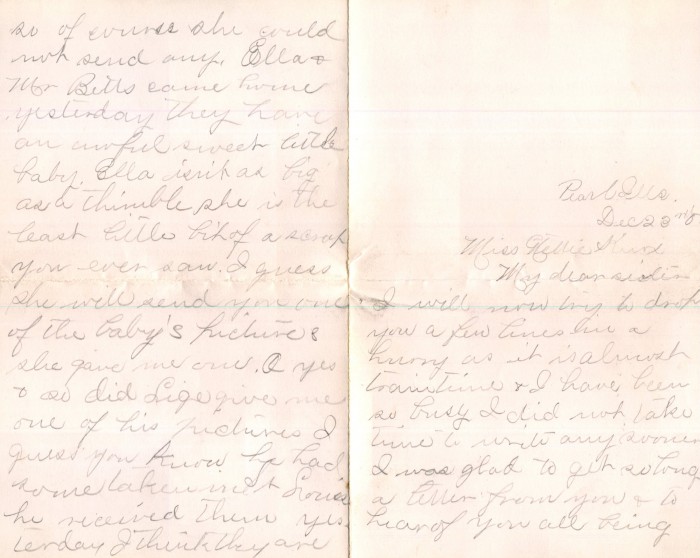 so of course she could
not send any. Ella &
Mr Betts came home
yesterday they have
an awful sweet little
baby. Ella isn't as big
as a thimble, she is the
least little bit of a scrap
you ever saw. I guess
she will send you one
of the baby's pictures
she gave me one. O yes
& so did Lige give me
one of his pictures I
guess you know he had
some taken in St Louis
he received them yes
terday I think they are
Pearl Ills.
Dec 23
Miss Nettie
My dear sister
I will now try to drop
you a few lines in a
hurry as it is almost
train time & I have been
so busy I did not take
time to write any sooner
I was glad to get so long
a letter from you & to
hear of you all being